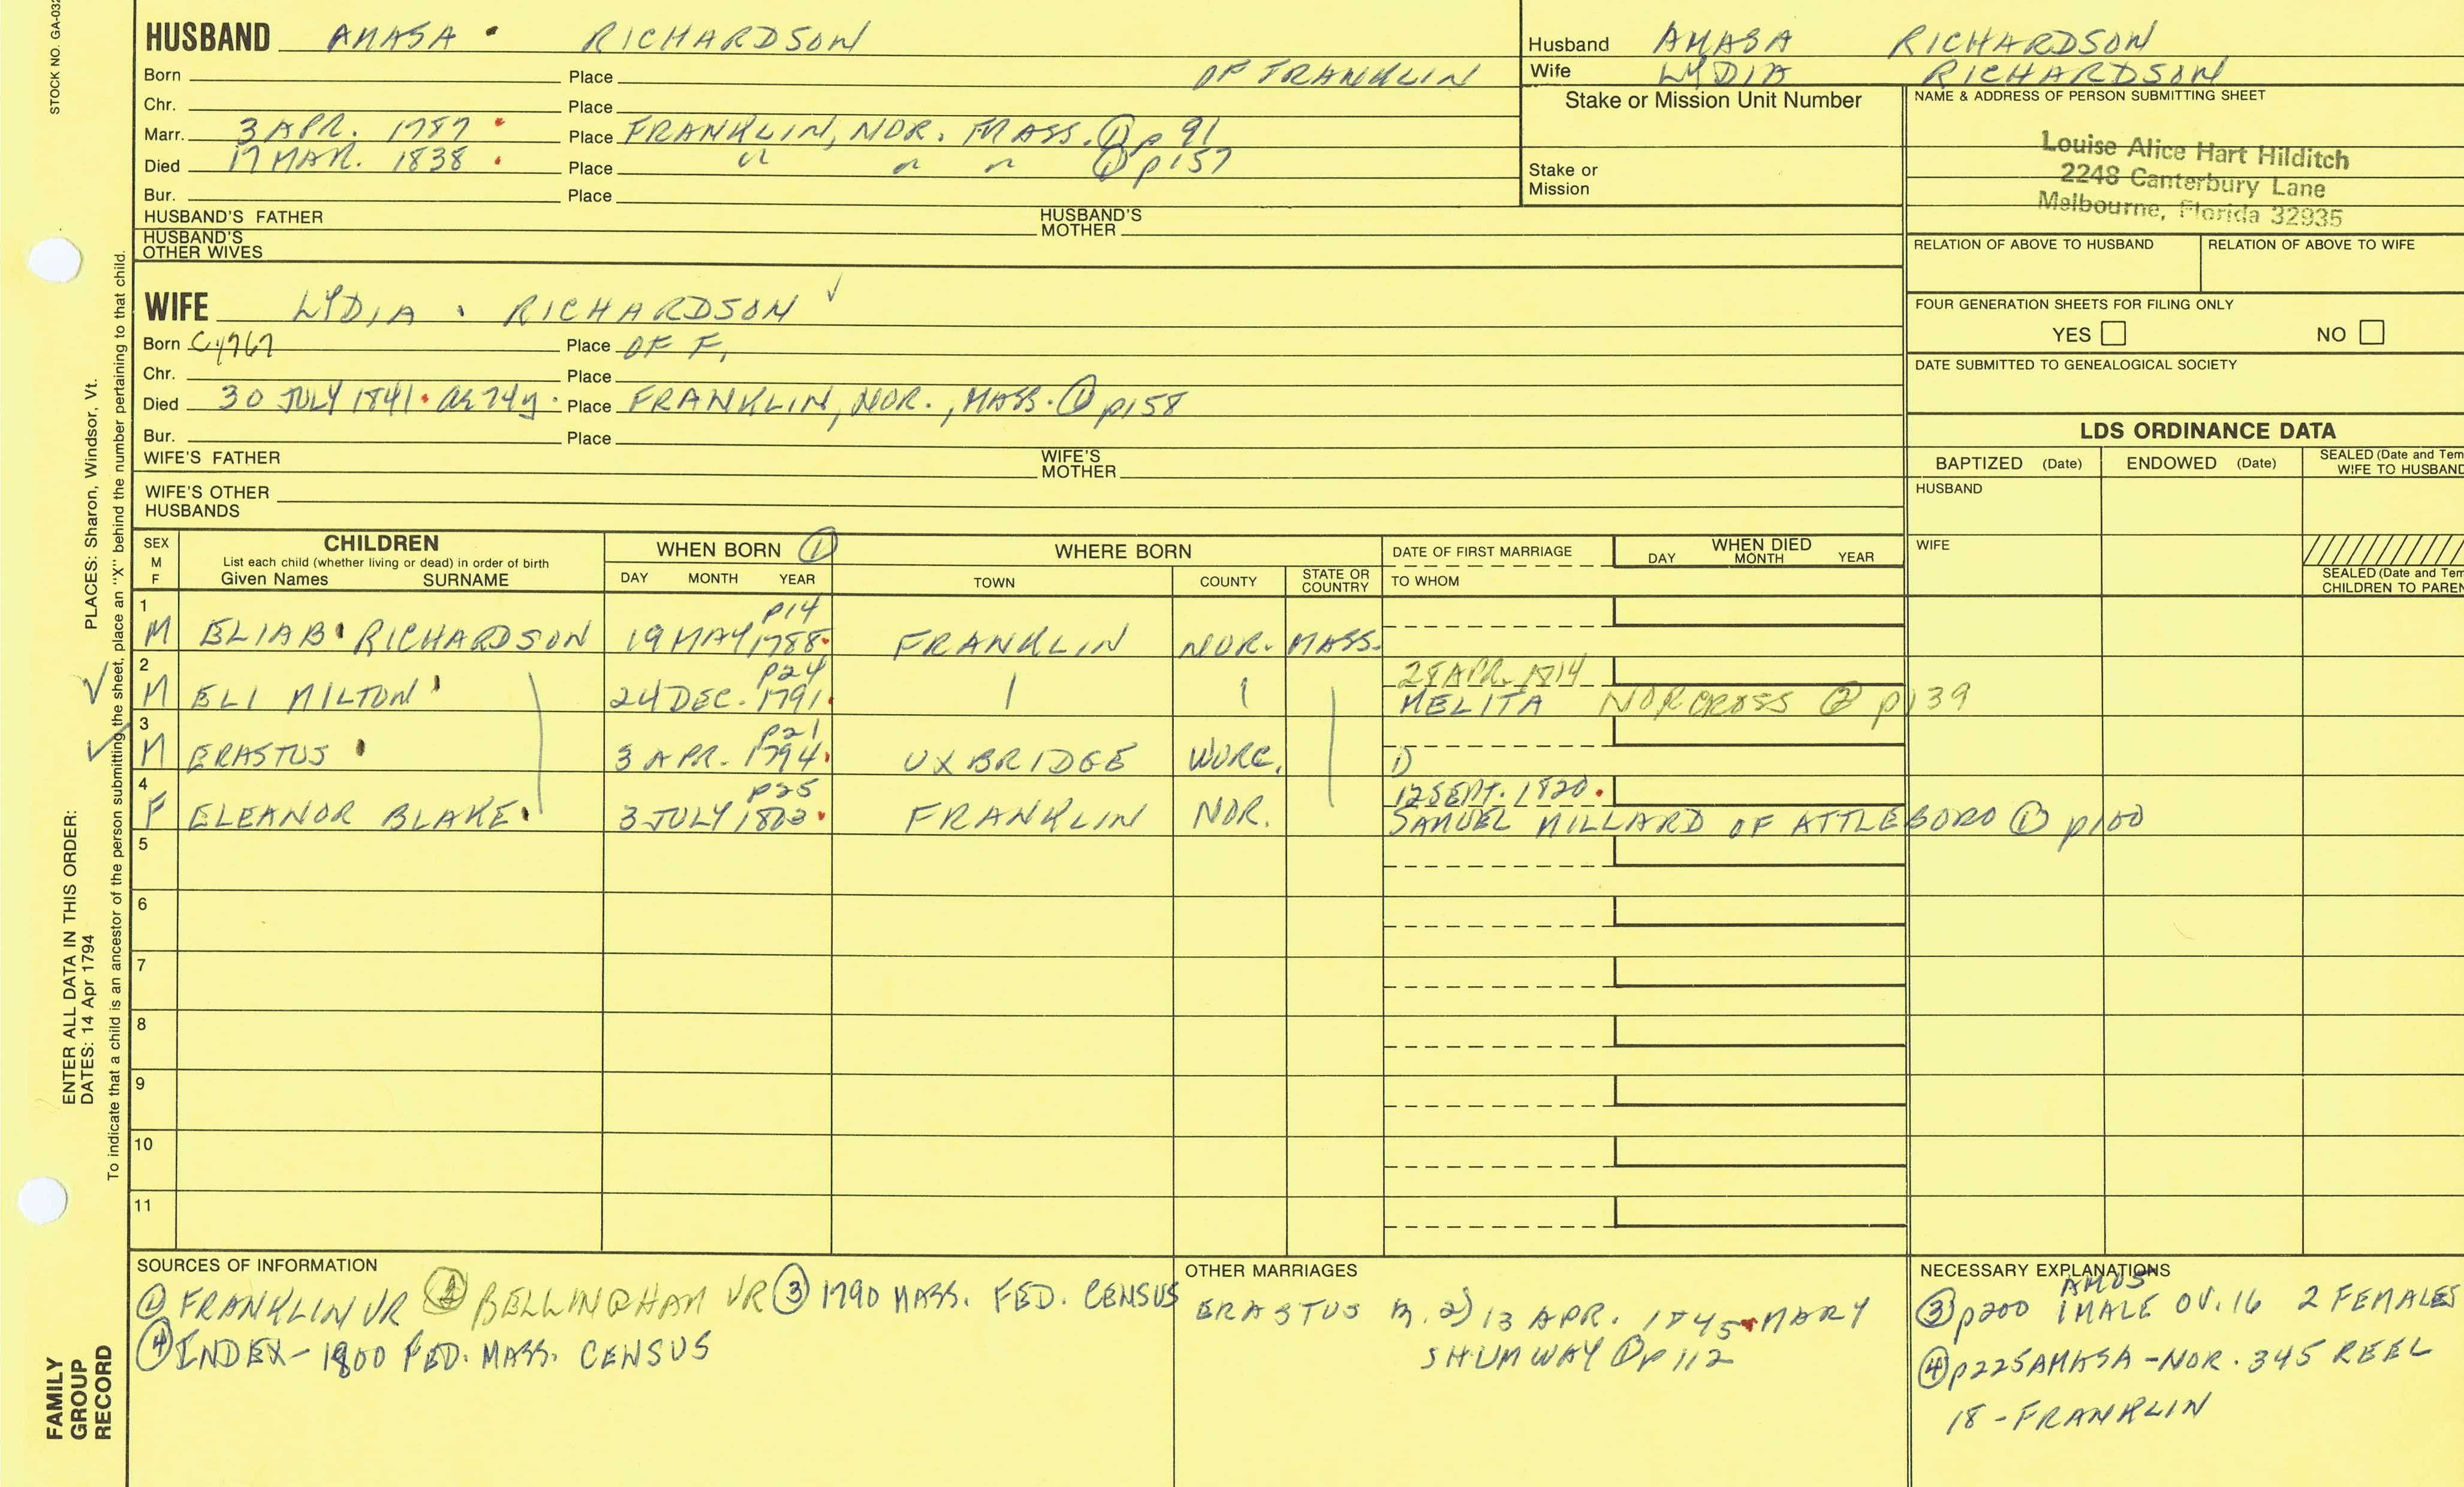 STOCK NO. GA-032
HUSBAND AMASA RICHARDSON
Born Place OF FRANKLIN
Chr. Place
Marr. 3 APR. 1787 Place FRANKLIN, NOR. MASS. ① p 91
Died 17 MAR. 1838 Place " " " ① p157
Bur. Place
HUSBAND'S FATHER HUSBAND'S MOTHER
HUSBAND'S OTHER WIVES
Husband AMASA RICHARDSON
Wife LYDIA RICHARDSON
Stake or Mission Unit Number
Stake or
Mission
NAME & ADDRESS OF PERSON SUBMITTING SHEET
Louise Alice Hart Hilditch
2248 Canterbury Lane
Melbourne, Florida 32935
RELATION OF ABOVE TO HUSBAND RELATION OF ABOVE TO WIFE
FOUR GENERATION SHEETS FOR FILING ONLY
YES NO
DATE SUBMITTED TO GENEALOGICAL SOCIETY
WIFE LYDIA RICHARDSON ✓
Born C1767 Place OF F.
Chr. Place
Died 30 JULY 1841 ae 74y Place FRANKLIN, NOR., MASS. ① p158
Bur. Place
WIFE'S FATHER WIFE'S MOTHER
WIFE'S OTHER
HUSBANDS
LDS ORDINANCE DATA
BAPTIZED (Date) ENDOWED (Date) SEALED (Date and Tem
WIFE TO HUSBAND
HUSBAND
WIFE
SEALED (Date and Tem
CHILDREN TO PAREN
SEX
M
F
CHILDREN
List each child (whether living or dead) in order of birth
Given Names SURNAME
WHEN BORN ①
DAY MONTH YEAR
WHERE BORN
TOWN COUNTY STATE OR COUNTRY
DATE OF FIRST MARRIAGE
TO WHOM
WHEN DIED
DAY MONTH YEAR
1 p14
M ELIAB RICHARDSON 19 MAY 1788 FRANKLIN NOR. MASS.
2 p24 28 APR. 1814
✓ M ELI MILTON 24 DEC. 1791 MELITA NORCROSS ② p139
3 p21
✓ M ERASTUS 3 APR. 1794 UXBRIDGE WORC. 1)
4 p25 12 SEPT. 1820
F ELEANOR BLAKE 3 JULY 1803 FRANKLIN NOR. SAMUEL MILLARD OF ATTLEBORO ① p100
5
6
7
8
9
10
11
SOURCES OF INFORMATION
① FRANKLIN VR ② BELLINGHAM VR ③ 1790 MASS. FED. CENSUS
④ INDEX - 1800 FED. MASS. CENSUS
OTHER MARRIAGES
ERASTUS M. 2) 13 APR. 1845 MARY
SHUMWAY ① p 112
NECESSARY EXPLANATIONS
AMOS
③ p200 1 MALE OV. 16 2 FEMALES
④ p225 AMASA - NOR. 345 REEL
18 - FRANKLIN
FAMILY
GROUP
RECORD
ENTER ALL DATA IN THIS ORDER:
DATES: 14 Apr 1794
PLACES: Sharon, Windsor, Vt.
To indicate that a child is an ancestor of the person submitting the sheet, place an "X" behind the number pertaining to that child.